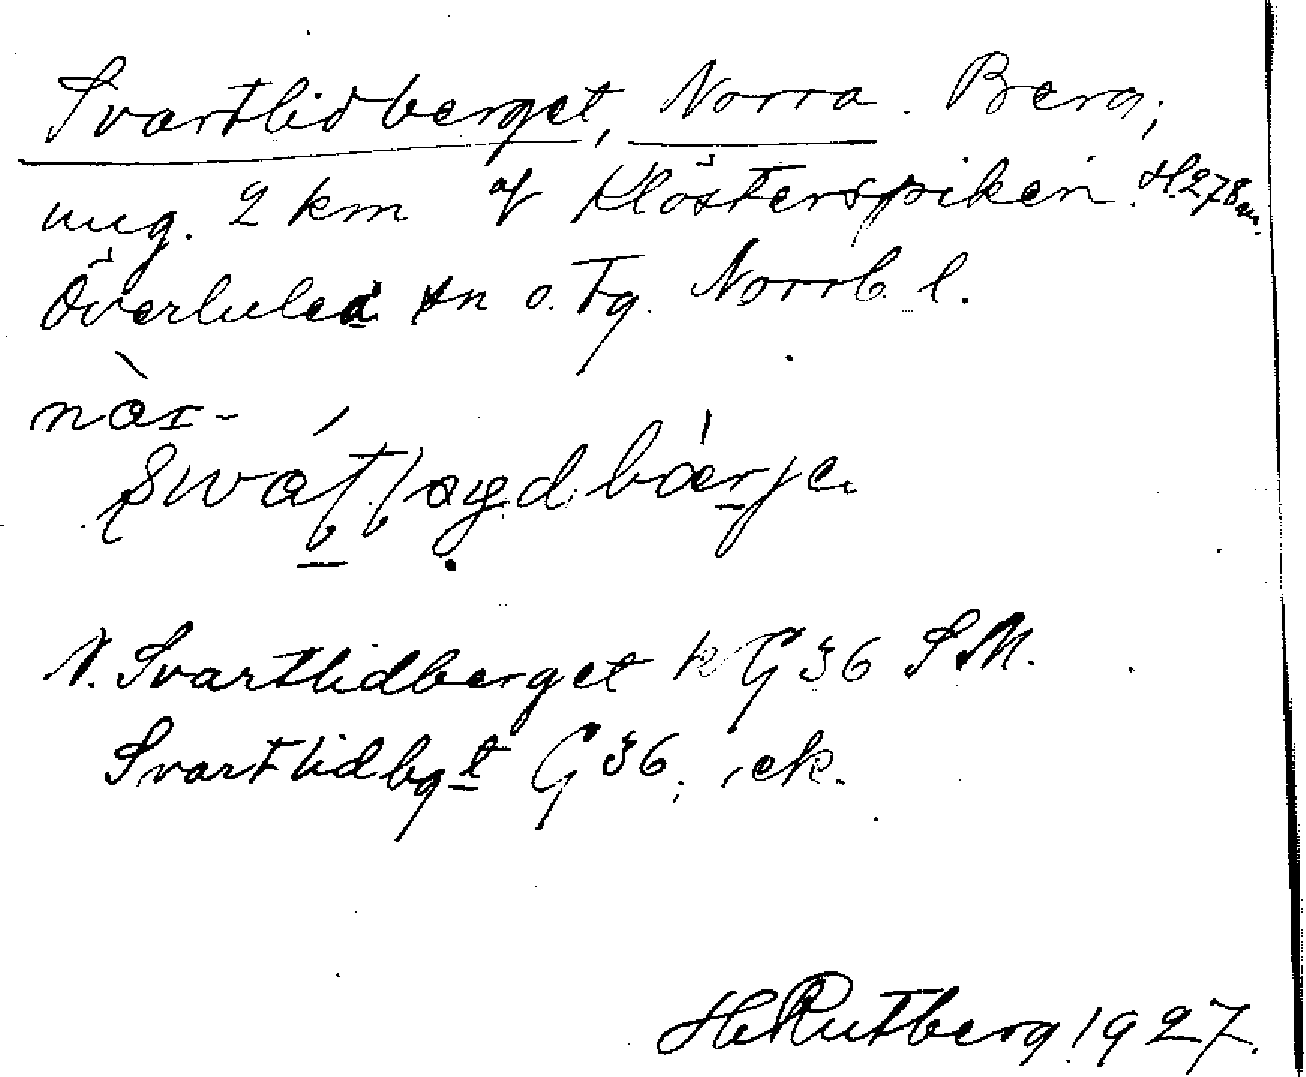 Svartlidberget, Norra. Berg,
ung. 2 km af Klösterspiken. H. 278 m.
Överluleå sn o. tg. Norrb. l.
nàr-
N. Svartlidberget k G 36 SM.
Svartlidbgt G 36, ek.
H Rutberg 1927.